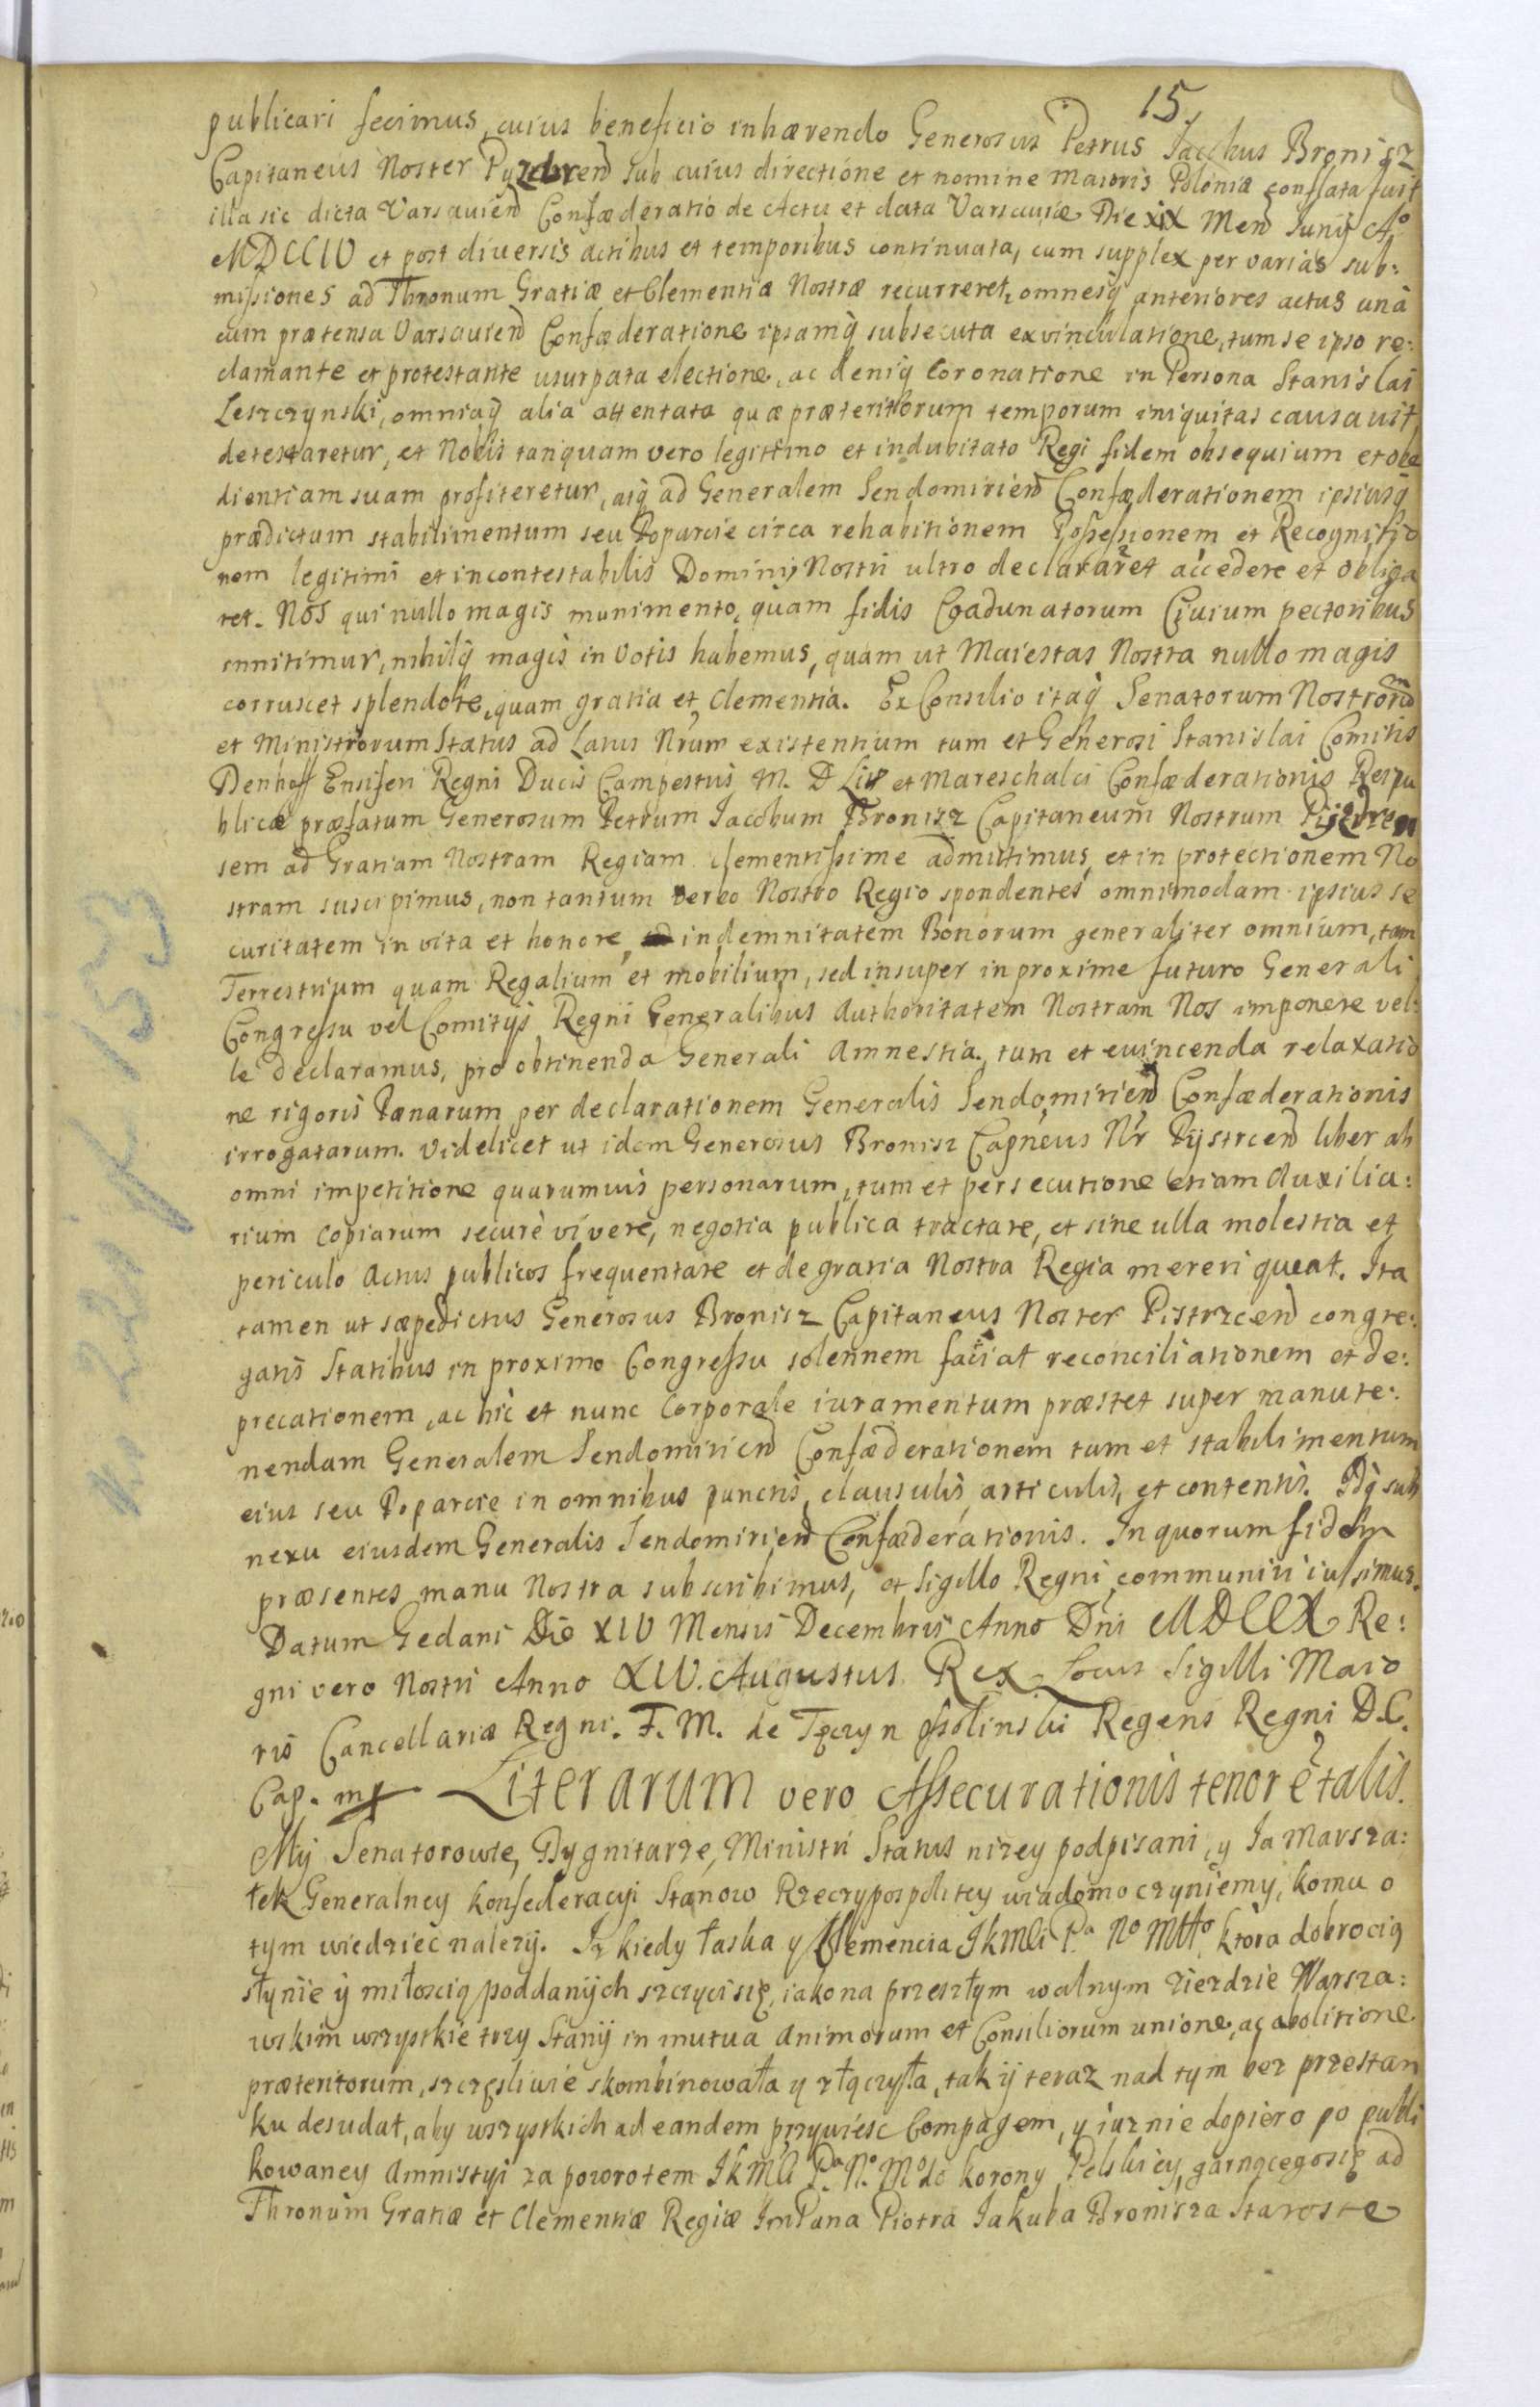 15
publicari fecimus, cuius beneficio inhærendo Generosus Petrus Jacobus Bronisz
Capitaneus Noster Pyzdren sub cuius directione et nomine Maioris Poloniæ conflata fuit
illa sic dicta Varsavien Confœderatio de Actu et data Varsaviæ Die XIX Men Junij Aº
MDCCIV et post diversis actibus et temporibus continuata, cum supplex per varias sub:
missiones ad Thronum Gratiæ et Clementiæ Nostræ recurreret, omnesq anteriores actus unà
cum prætensa Varsavien Confœderatione ipsamq subsecuta exvinculatione, tum se ipso re:
clamante et protestante usurpata electione, ac deniq Coronatione in Persona Stanislai
Leszczynski, omniaq alia attentata quæ præteritorum temporum iniquitas causavit,
detestaretur, et Nobis tanquam vero legittimo et indubitato Regi fidem obsequium et obe
dientiam suam profiteretur, atq ad Generalem Sendomirien Confœderationem ipsiusq
prædictum stabilimentum seu Poparcie circa rehabitionem Possessionem et Recognitio
nem legitimi et incontestabilis Dominij Nostri ultro declararet accedere et obliga
ret. Nos qui nullo magis munimento, quam fidis Coadunatorum Civium pectoribus
innitimur, nihilq magis in Votis habemus, quam ut Maiestas Nostra nullo magis
corruscet splendore, quam gratia et Clementia. Ex Consilio itaq Senatorum Nostrorum
et Ministrorum Status ad Latus Nrum existentium tum et Generosi Stanislai Comitis
Denhoff Ensiferi Regni Ducis Campestris M. D Lit et Mareschalci Confœderationis Reipu
blicæ præfatum Generosum Petrum Jacobum Bronisz Capitaneum Nostrum Pyzdren
sem ad Gratiam Nostram Regiam clementissime admittimus, et in protectionem No
stram suscipimus, non tantum verbo Nostro Regio spondentes omnimodam ipsius se
curitatem in vita et honore, indemnitatem Bonorum generaliter omnium, tam
Terrestrium quam Regalium et mobilium, sed insuper in proxime futuro Generali
Congressu vel Comitijs Regni Generalibus Authoritatem Nostram Nos imponere vel:
le declaramus, pro obtinenda Generali Amnestia, tum et evincenda relaxatio
ne rigoris Pœnarum per declarationem Generalis Sendomirien Confœderationis
irrogatarum. Videlicet ut idem Generosus Bronisz Capneus Nr Pystrcen liber ab
omni impetitione quarumvis personarum, tum et persecutione etiam Auxilia:
rium copiarum securè vivere, negotia publica tractare, et sine ulla molestia et
periculo Actus publicos frequentare et de gratia Nostra Regia mereri queat. Ita
tamen ut sæpedictus Generosus Bronisz Capitaneus Noster Pistrzcen congre:
gatis Statibus in proximo Congressu solennem faciat reconciliationem et de:
precationem, ac hic et nunc Corporale iuramentum præstet super manute:
nendam Generalem Sendomirien Confœderationem tum et stabilimentum
eius seu Poparcie in omnibus punctis, clausulis, articulis, et contentis. Idq sub
nexu eiusdem Generalis Sendomirien Confœderationis. In quorum fidem
præsentes manu Nostra subscribimus, et Sigillo Regni communiri iussimus.
Datum Gedani Die XIV Mensis Decembris Anno Dni MDCCX Re:
gni vero Nostri Anno XIV. Augustus Rex Locus Sigilli Maio
ris Cancellariæ Regni. F. M. de Tęczyn Ossolinski Regens Regni D.C.
Cap. mp Literarum vero Assecurationis tenor e talis.
My Senatorowie, Dygnitarze, Ministri Status niżey podpisani, y Ja Marsza:
łek Generalney konfederacyi Stanow Rzeczypospolitey wiadomo czyniemy, komu o
tym wiedziec nalezy. Iz kiedy łaska y Clemencia JKMCi Pª Nº Mttº, ktora dobrocią
słynie y miłoscią poddanych szczyci się, iako na przeszłym walnym zieździe Warsza:
wskim wszystkie trzy Stany in mutua Animorum et Consiliorum unione, ac abolitione
præteritorum, szczęsliwie skombinowała y złączyła, tak y teraz nad tym bez przestan
ku desudat, aby wszystkich ad eandem przywiesc Compagem, y iuz nie dopiero po publi
kowaney Amnistyi za powrotem JKMCi Pª Nº Mº do Korony Polskiey, garnącego się ad
Thronum Gratiæ et Clementiæ Regiæ ImPana Piotra Jakuba Bronisza Staroste